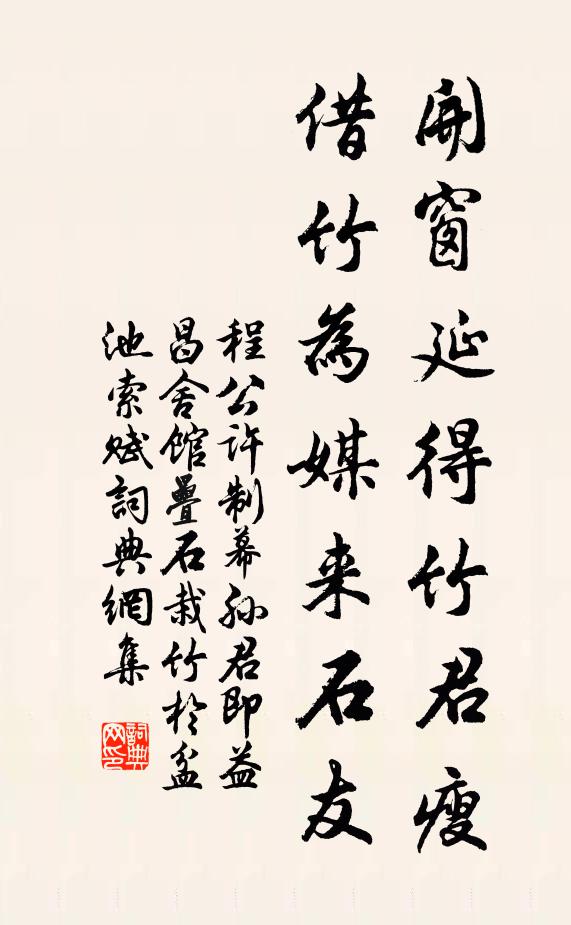 開窗延得竹君瘦
借竹為媒来石友
程公許制幕孙君即益
昌舍館疊石栽竹於盆
池索赋詞典網集
詞典网印